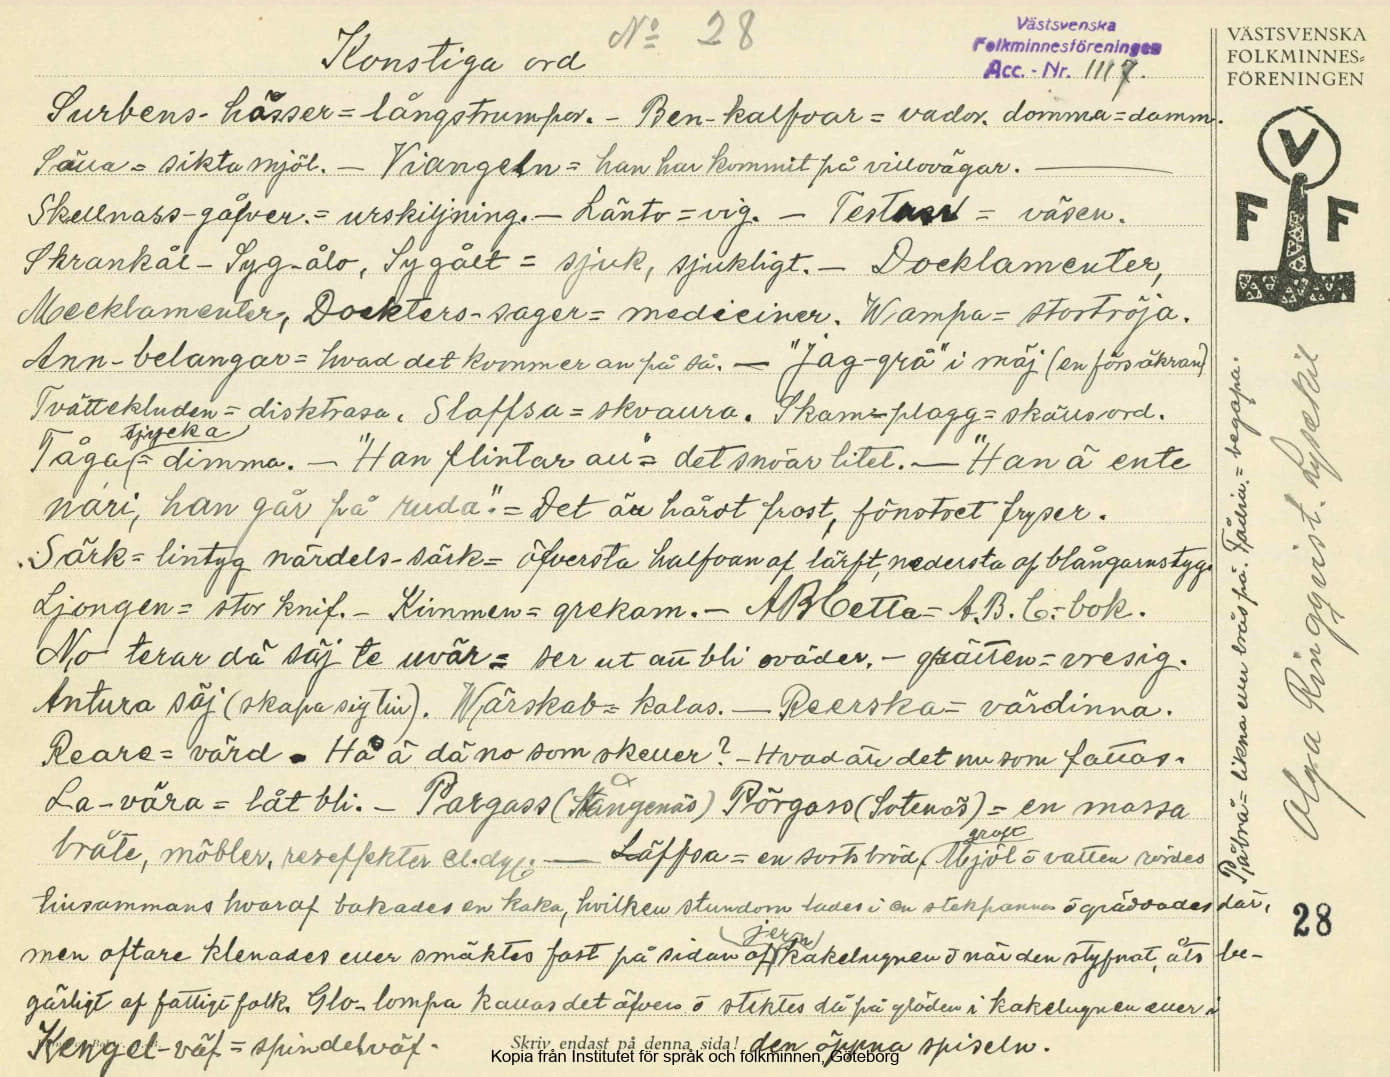 Nº 28
Konstiga ord
Västsvenska
Folkminnesföreningen
Acc. - Nr. 1117.
VÄSTSVENSKA
FOLKMINNES=
FÖRENINGEN
V
F F
Surbens-håsser = långstrumpor. – Ben-kalfvar = vador. domma = damm.
Sälla = sikta mjöl. – Viangeln = han har kommit på villovägar. –
Skellnass-gåfver. = urskiljning. – Länto = vig. – = väsen.
Skrankål – Syg-ålo, Sygålt = sjuk, sjukligt. – Docklamenter,
Mecklamenter, Dockters-sager = mediciner. Wampa = stortröja.
Ann-belangar = hvad det kommer an på så. – "Jag-grå" i mäj (en försäkran)
Tvättekluden = disktrasa. Slaffsa = skvallra. Skam-plagg = skällsord.
Tåga (tjycka) = dimma. – "Han flintar all" = det snöar litet. – "Han ä ente
nári, han går på ruda". = Det är hårdt frost, fönstret fryser.
Särk = lintyg närdels-särk = öfversta halfvan af lärft, nedersta af blångarnstyg.
Ljongen = stor knif. – Kimmen = grekam. – ABCetta = A.B.C.-bok.
No terar dä säj te uvär = ser ut att bli oväder. – grätten = vresig.
Antura säj (skapa sig till). Wärskab = kalas. – Reerska = värdinna.
Reare = värd. Hå ä dä no som skeller? – Hvad är det nu som fattas.
La-vära = låt bli. – Pargass (Stångenäs) Pörgass (Sotenäs) = en massa
bråte, möbler, reseffekter el. dyl. – Läffsa = en sorts bröd, groft Mjöl ö vatten rördes
tillsammans hvaraf bakades en kaka, hvilken stundom lades i en stekpanna ö gräddades där,
men oftare klenades eller smäktes fast på sidan af (jern) kakelugnen ö när den styfnat, äts be-
gärligt af fattigt folk. Glo-lompa kallas det äfven ö stektes då på glöden i kakelugnen eller i
Kengel-väf = spindelväf. Skriv endast på denna sida! den öppna spiseln.
Kopia från Institutet för språk och folkminnen, Göteborg
Påbrå = likna eller brås på. = begapa.
Olga Ringqvist. Lysekil
28